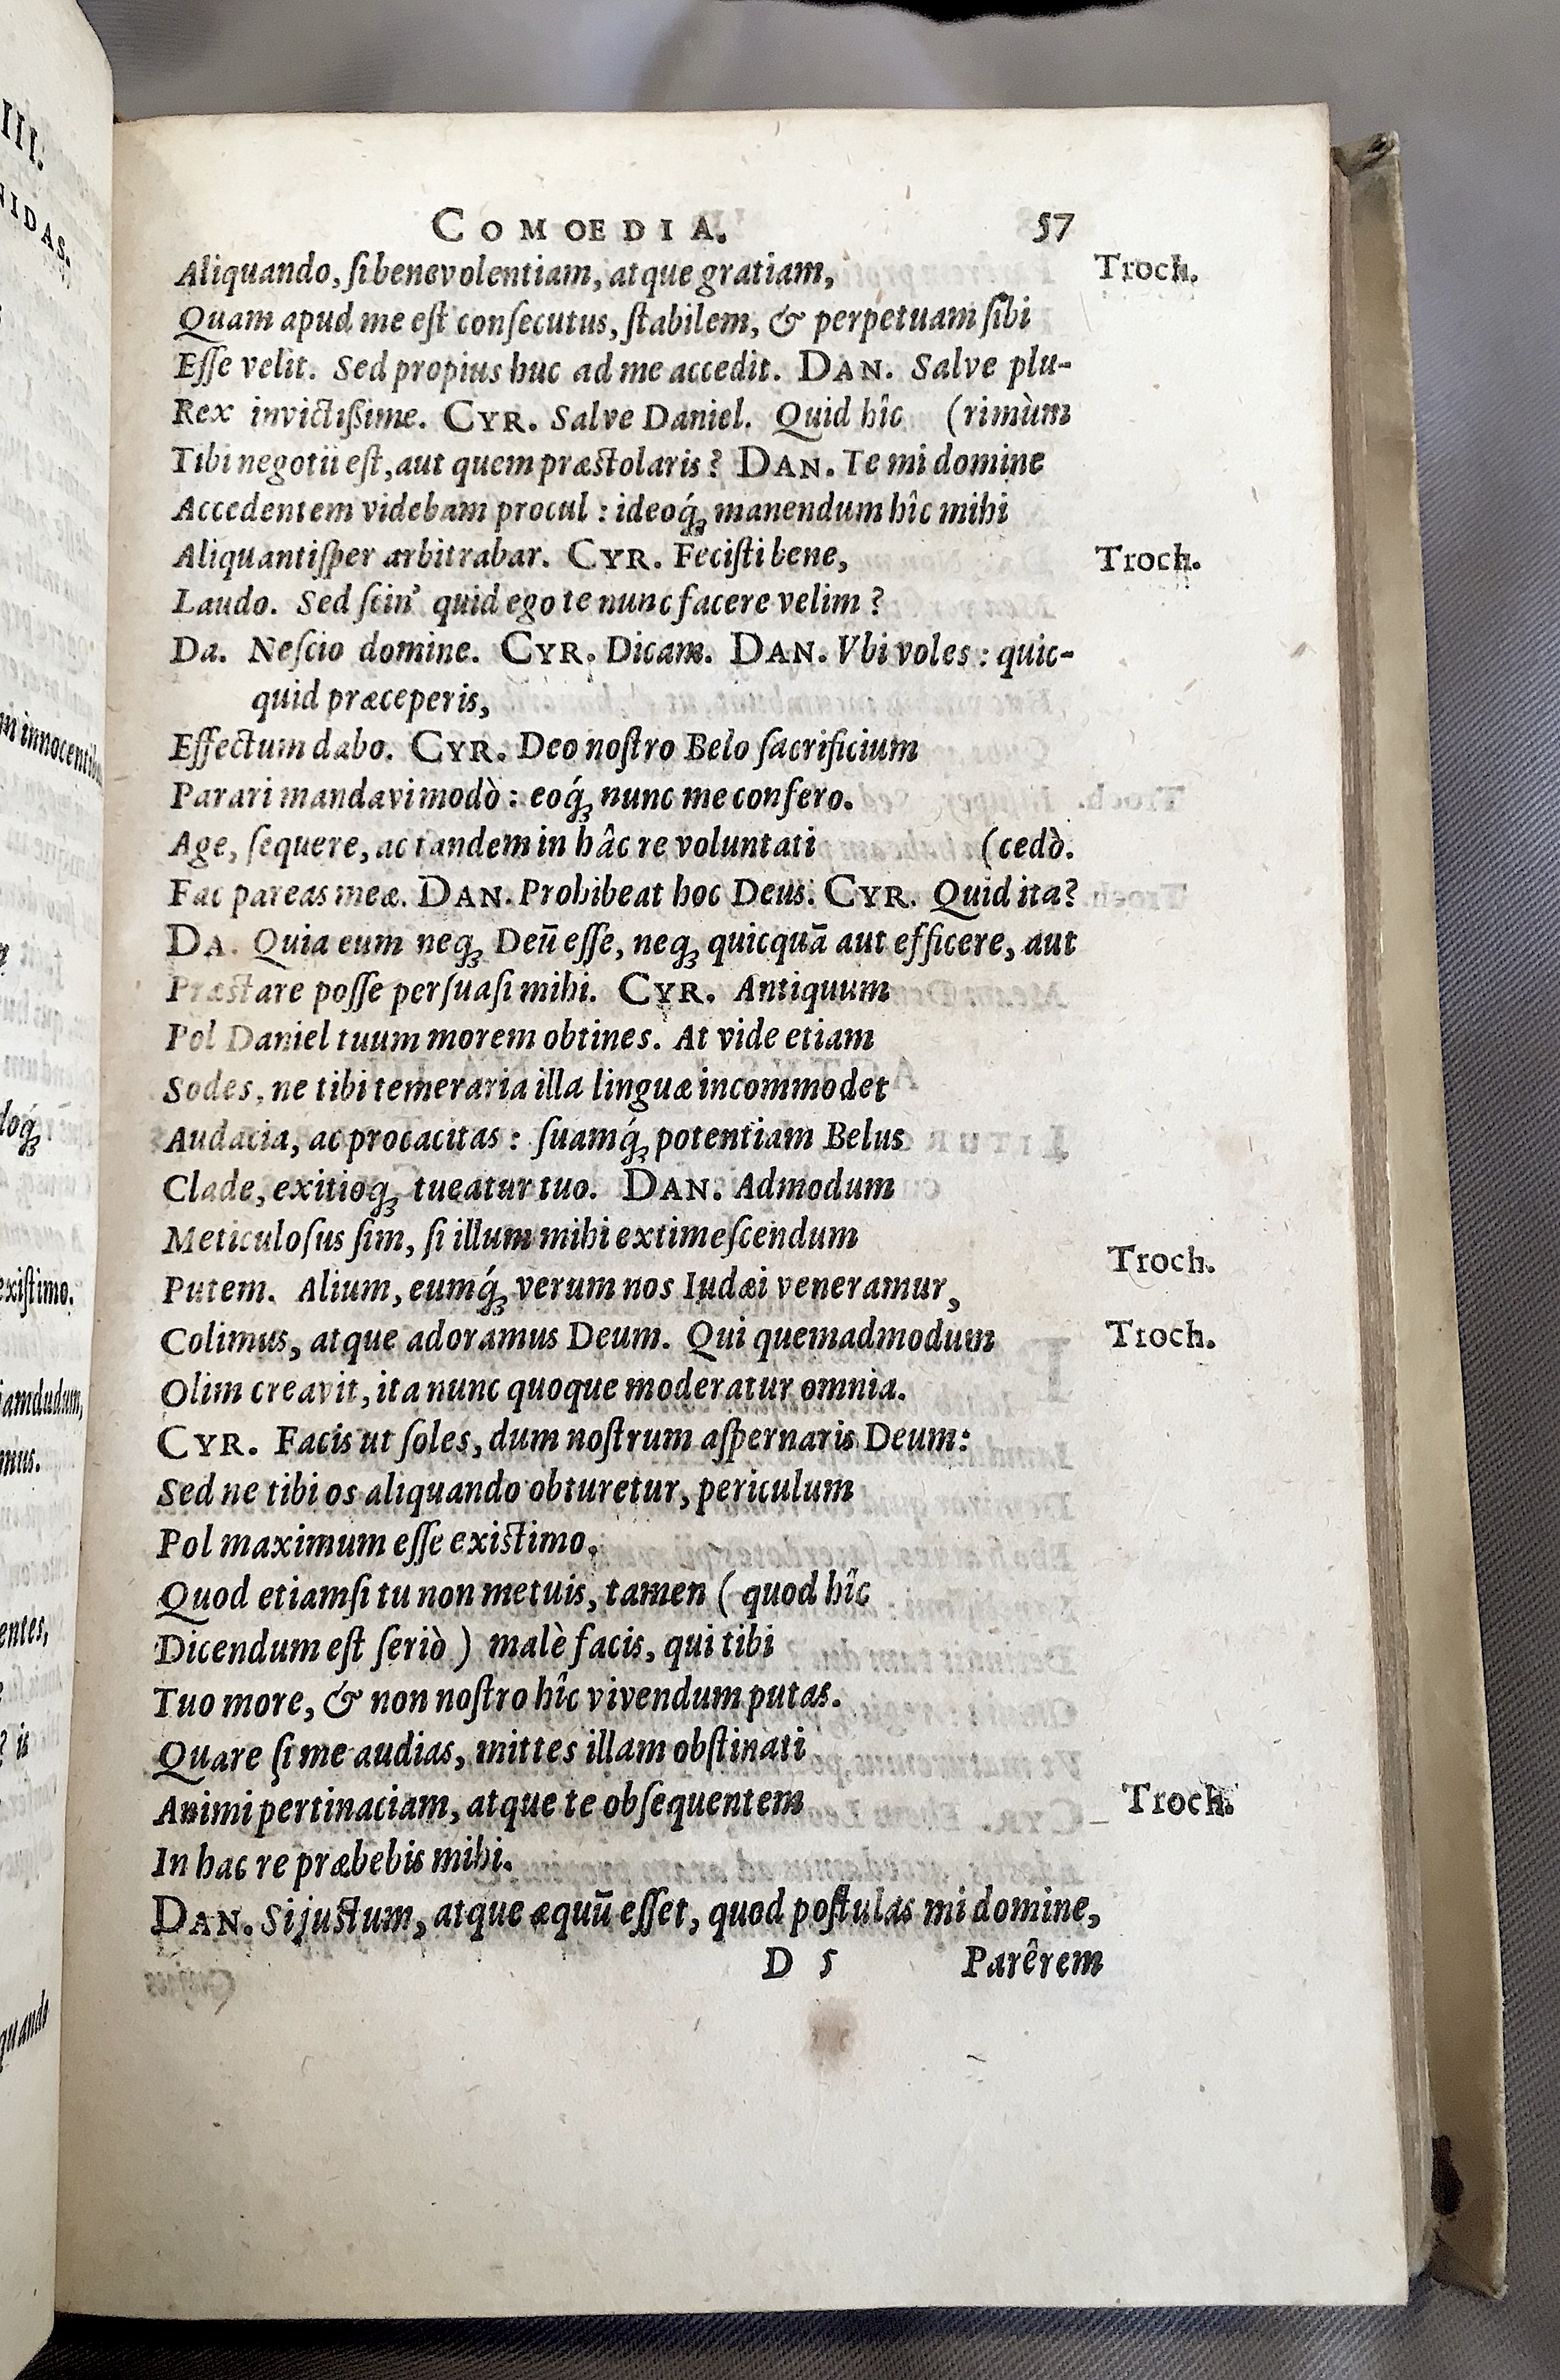 COMOEDIA. 57
Aliquando, ſi benevolentiam, atque gratiam, Troch.
Quam apud me eſt conſecutus, ſtabilem, & perpetuam ſibi
Eſſe velit. Sed propius huc ad me accedit. DAN. Salve plu-
Rex invictißime. CYR. Salve Daniel. Quid hîc (rimùm
Tibi negotii eſt, aut quem præſtolaris? DAN. Te mi domine
Accedentem videbam procul: ideoq́ꝫ manendum hîc mihi
Aliquantiſper arbitrabar. CYR. Feciſti bene, Troch.
Laudo. Sed ſcin' quid ego te nunc facere velim?
Da. Neſcio domine. CYR. Dicam. DAN. Vbi voles: quic-
quid præceperis,
Effectum dabo. CYR. Deo noſtro Belo ſacrificium
Parari mandavi modò: eoq́ꝫ nunc me confero.
Age, ſequere, ac tandem in hâc re voluntati (cedò.
Fac pareas meæ. DAN. Prohibeat hoc Deus. CYR. Quid ita?
DA. Quia eum neqꝫ Deū eſſe, neqꝫ quicquā aut efficere, aut
Præſtare poſſe perſuaſi mihi. CYR. Antiquum
Pol Daniel tuum morem obtines. At vide etiam
Sodes, ne tibi temeraria illa linguæ incommodet
Audacia, ac procacitas: ſuamq́ꝫ potentiam Belus
Clade, exitioqꝫ tueatur tuo. DAN. Admodum
Meticuloſus ſim, ſi illum mihi extimeſcendum
Putem. Alium, eumq́ꝫ verum nos Iudæi veneramur, Troch.
Colimus, atque adoramus Deum. Qui quemadmodum Troch.
Olim creavit, ita nunc quoque moderatur omnia.
CYR. Facis ut ſoles, dum noſtrum aſpernaris Deum:
Sed ne tibi os aliquando obturetur, periculum
Pol maximum eſſe exiſtimo.
Quod etiamſi tu non metuis, tamen (quod hîc
Dicendum eſt ſeriò) malè facis, qui tibi
Tuo more, & non noſtro hîc vivendum putas.
Quare ſi me audias, mittes illam obſtinati
Animi pertinaciam, atque te obſequentem Troch.
In hac re præbebis mihi.
DAN. Si juſtum, atque æquū eſſet, quod poſtulas mi domine,
D 5 Parêrem